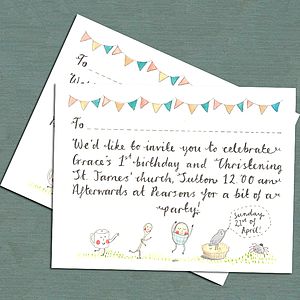 To
W
To
We'd like to invite you to celebrate
Grace's 1st birthday and Christening
St. James' church, Sutton 12.00 am
Afterwards at Pearsons for a bit of a
party!
Sunday
21st of
April